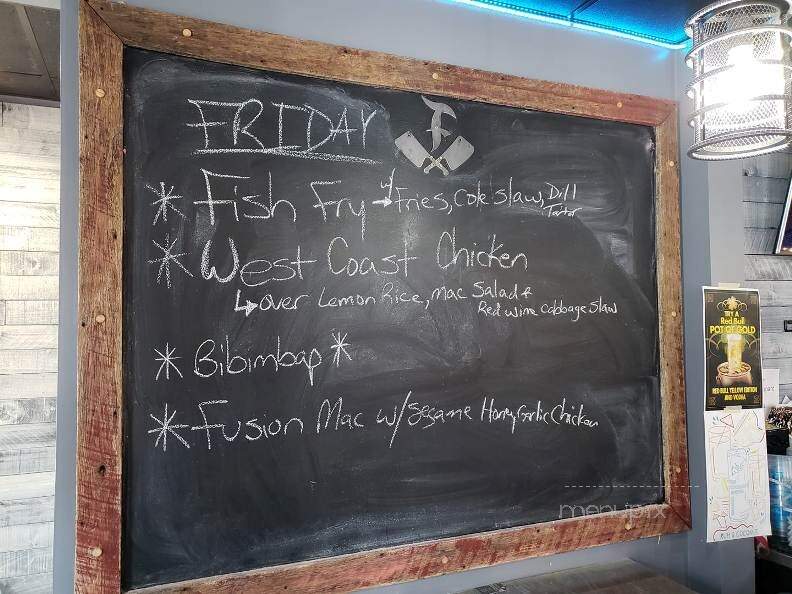 FRIDAY
F
* Fish Fry w/ → Fries, Cole Slaw, Dill
Tartar
* West Coast Chicken
↳ over Lemon Rice, Mac Salad +
Red wine Cabbage Slaw
* Bibimbap *
* Fusion Mac w/ Sesame Honey Garlic Chicken
TRY A
Red Bull
POT OF GOLD
RED BULL YELLOW EDITION
AND VODKA
menupix